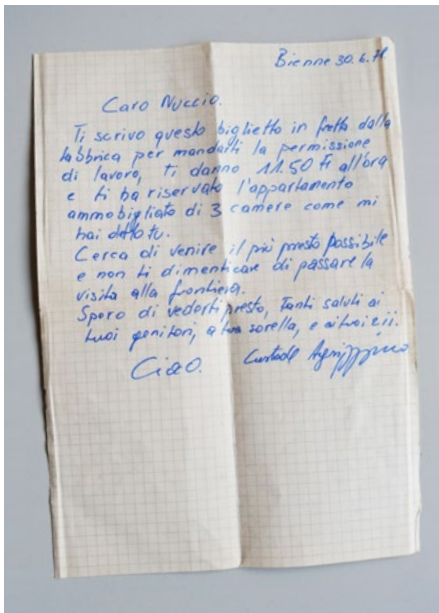 Bienne 30.6.78
Caro Nuccio.
Ti scrivo questo biglietto in fretta dalla
fabbrica per mandarti la permissione
di lavoro, ti danno 11.50 Fr all'ora
e ti ha riservato l'appartamento
ammobigliato di 3 camere come mi
hai detto tu.
Cerca di venire il più presto possibile
e non ti dimenticare di passare la
visita alla frontiera.
Spero di vederti presto, Tanti saluti ai
tuoi genitori, a tua sorella, e ai tuoi zii.
Ciao.